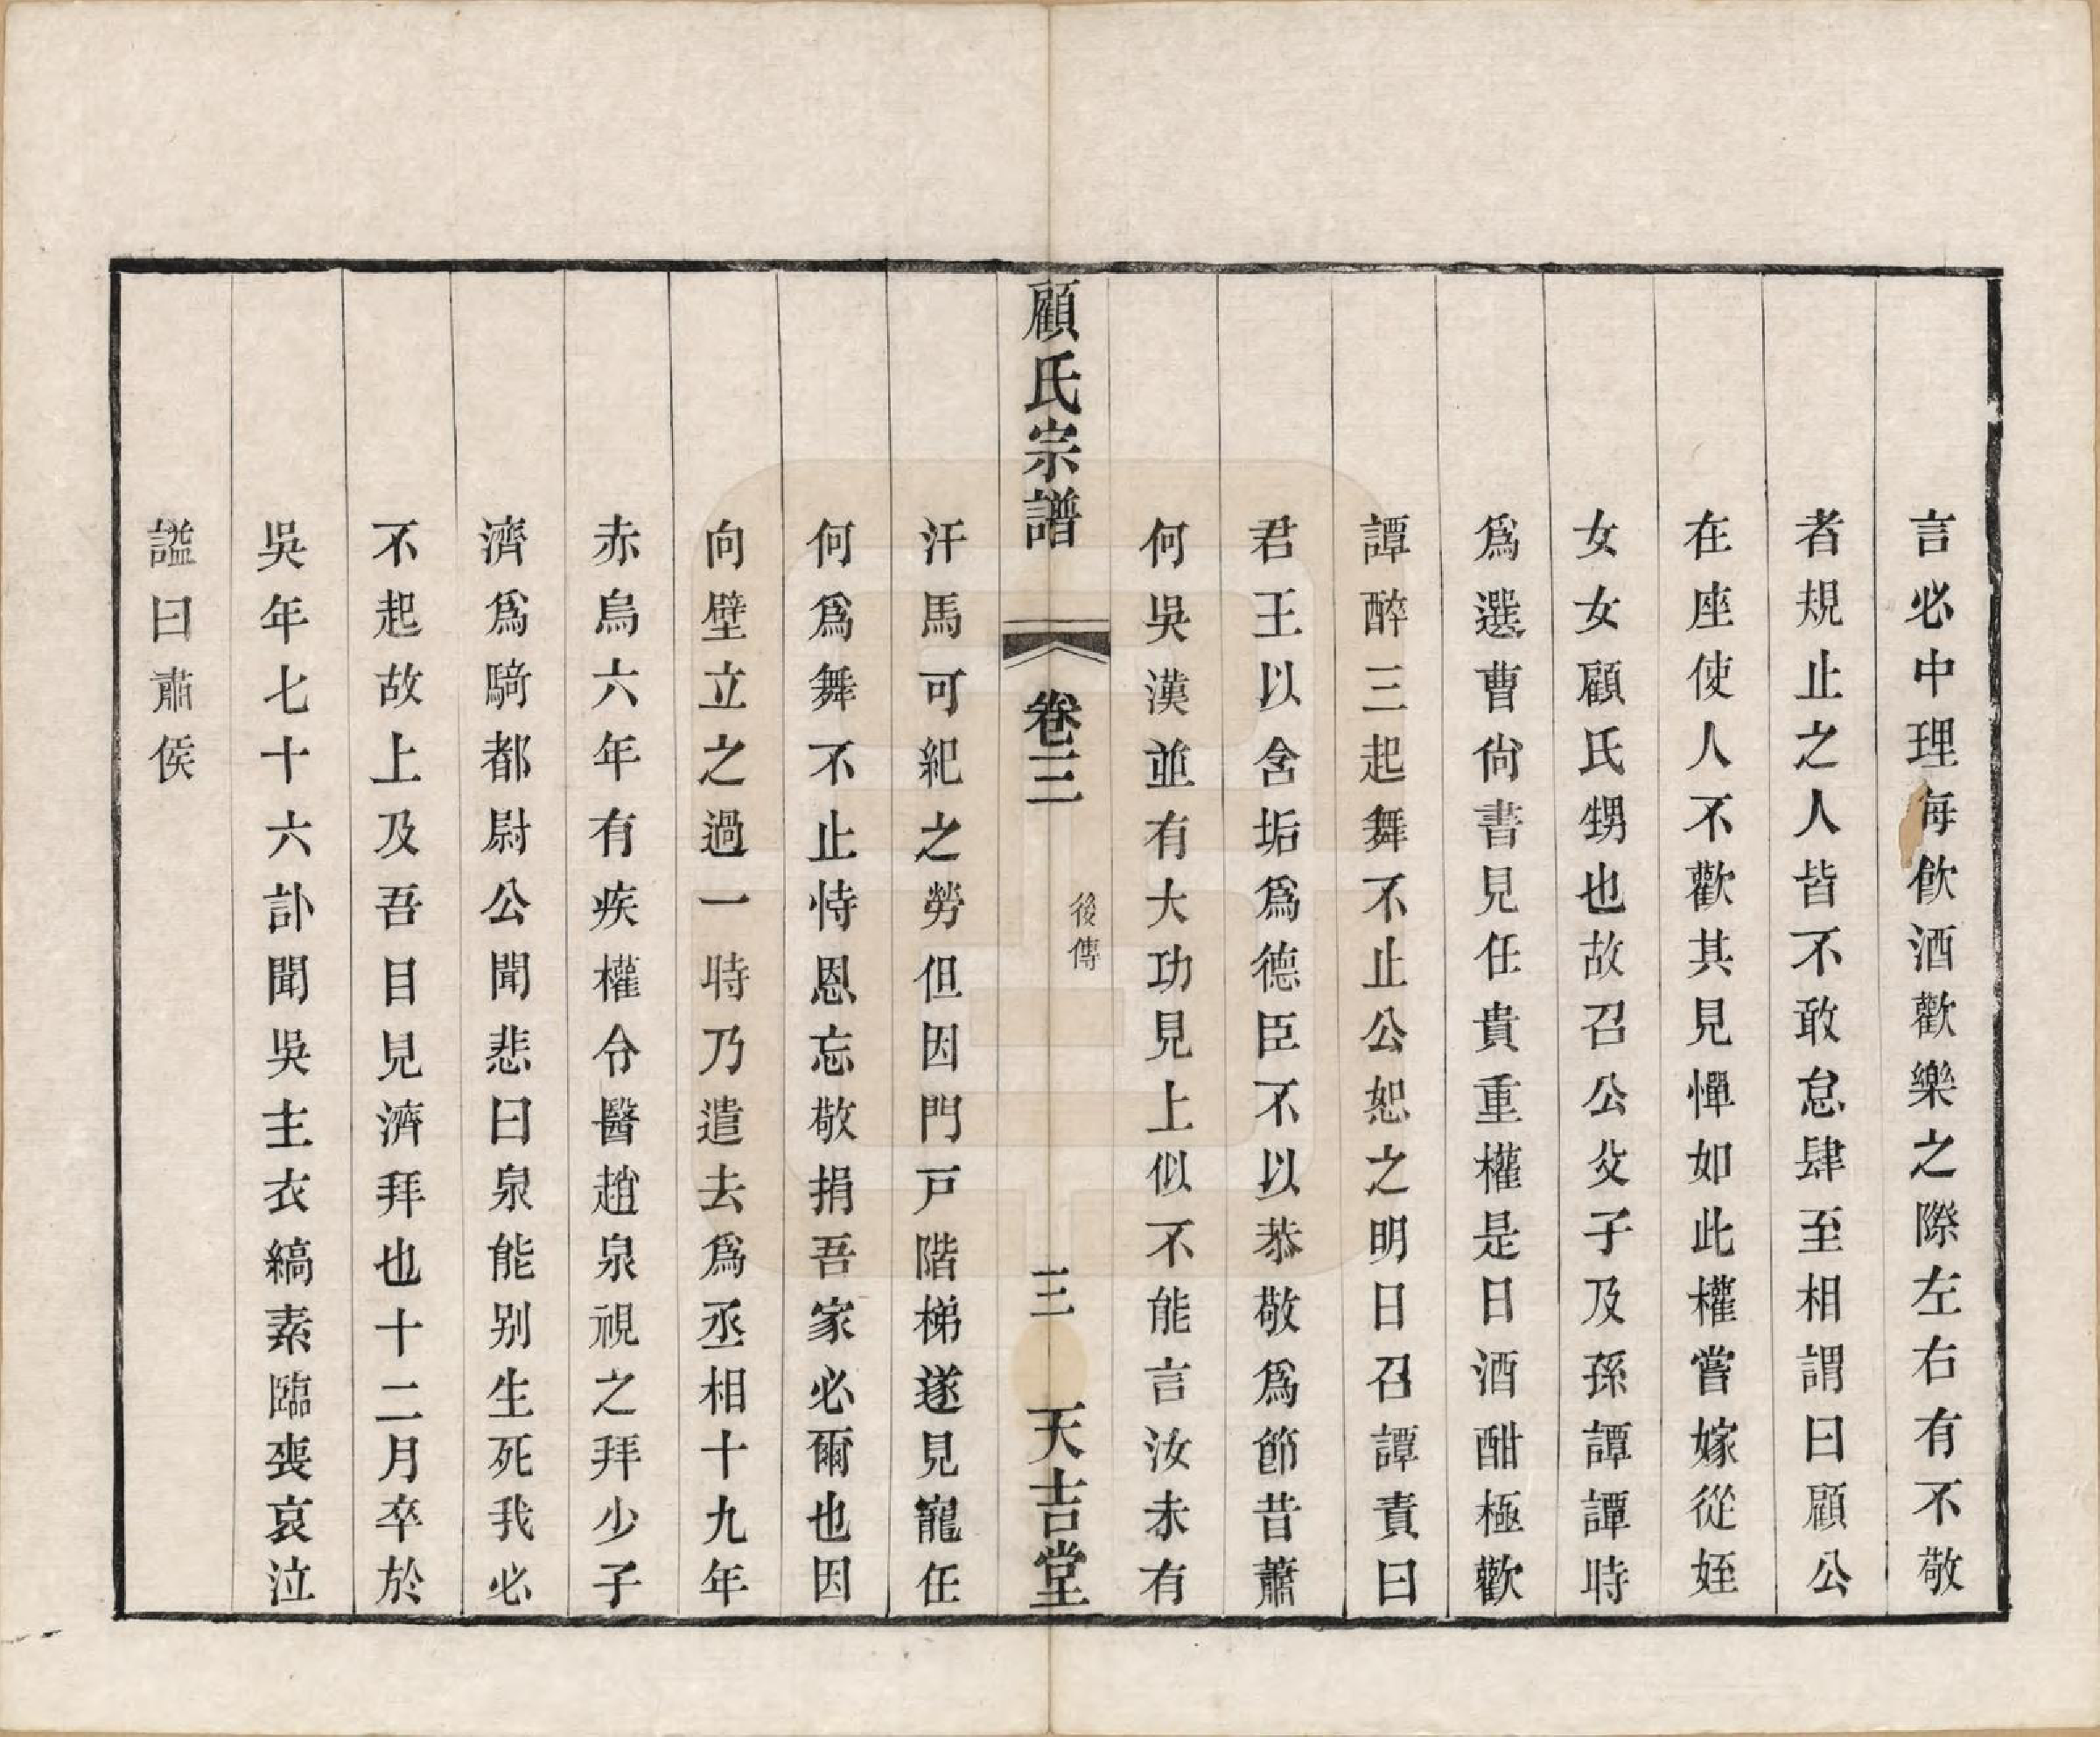 言必中理每飲酒歡樂之際左右有不敬
者規止之人皆不敢怠肆至相謂曰顧公
在座使人不歡其見憚如此權嘗嫁從姪
女女顧氏甥也故召公父子及孫譚譚時
爲選曹尙書見任貴重權是日酒酣極歡
譚醉三起舞不止公恕之明日召譚責曰
君王以含垢爲德臣不以恭敬爲節昔蕭
何吳漢並有大功見上似不能言汝未有
顧氏宗譜
卷三
後傳
三
天吉堂
汗馬可紀之勞但因門戸階梯遂見寵任
何爲舞不止恃恩忘敬捐吾家必爾也因
向壁立之過一時乃遣去爲丞相十九年
赤烏六年有疾權令醫趙泉視之拜少子
濟爲騎都尉公聞悲曰泉能别生死我必
不起故上及吾目見濟拜也十二月卒於
吳年七十六訃聞吳主衣縞素臨喪哀泣
謚曰肅侯